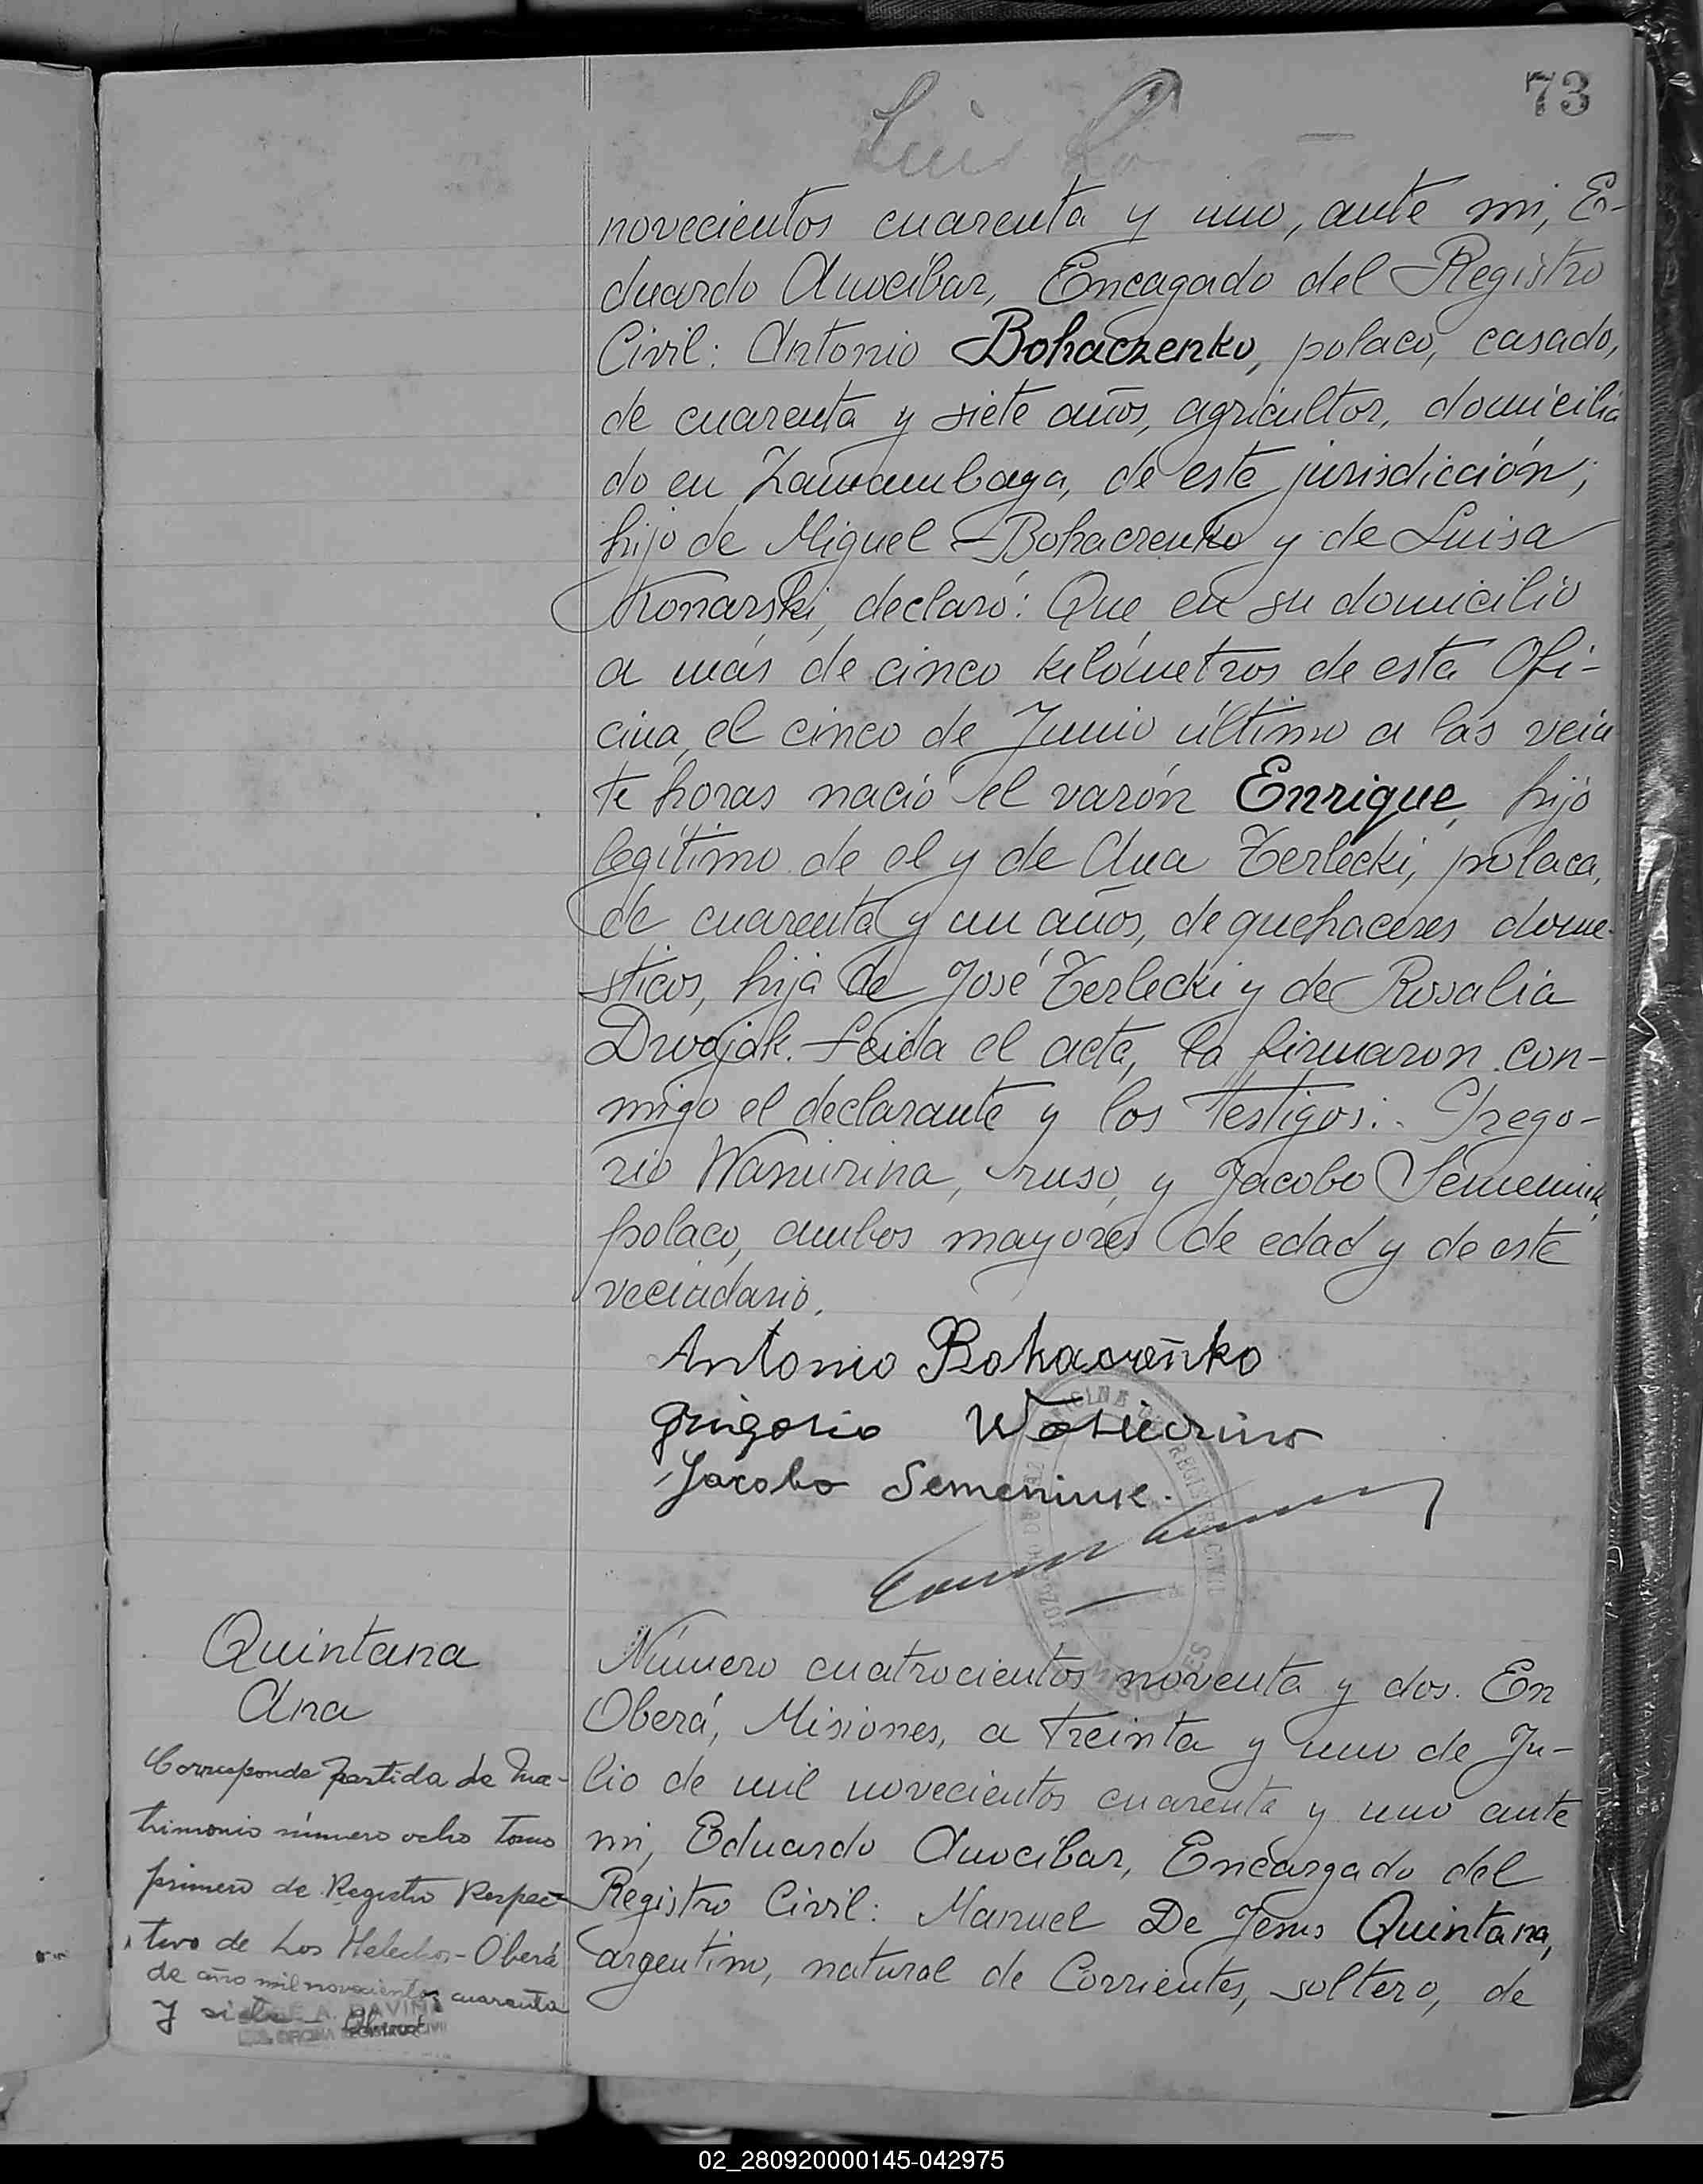 73
Luis
novecientos cuarenta y uno, ante mi, E-
duardo Anocíbar, Encagado del Registro
Civil: Antonio Bohaczenko, polaco, casado,
de cuarenta y siete años, agricultor, domicilia
do en Zamambaya, de esta jurisdicción;
hijo de Miguel Bohaczenko y de Luisa
Konarski, declaró: Que en su domicilio
a más de cinco kilómetros de esta Ofi-
cina, el cinco de Junio último a las vein
te horas nació el varón Enrique, hijo
legítimo de el y de Ana Terlecki, polaca,
de cuarenta y un años, de quehaceres dome-
sticos, hija de José Terlecki y de Rosalía
Dwojak. Leida el acta, la firmaron con-
migo el declarante y los testigos: Grego-
rio, ruso, y Jacobo Semeniuk,
polaco, ambos mayores de edad y de este
vecindario.
Antonio Bohaczeńko
Grigorio
Jacobo Semeniuk.
REGISTRO CIVIL
MISIONES
Quintana
Ana
Corresponde partida de Ma-
trimonio número ocho tomo
primero de Registro Respec-
tivo de Los Helechos-Oberá
de año mil novecientos cuarenta
y siete
Número cuatrocientos noventa y dos. En
Oberá, Misiones, a treinta y uno de Ju-
lio de mil novecientos cuarenta y uno ante
mi, Eduardo Anocíbar, Encargado del
Registro Civil: Manuel De Jesus Quintana,
argentino, natural de Corrientes, soltero, de
02_280920000145-042975